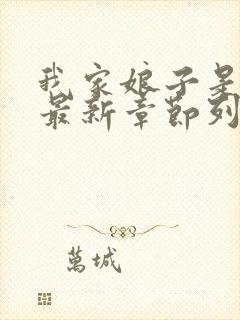 我家娘子是
最新章節列
萬城